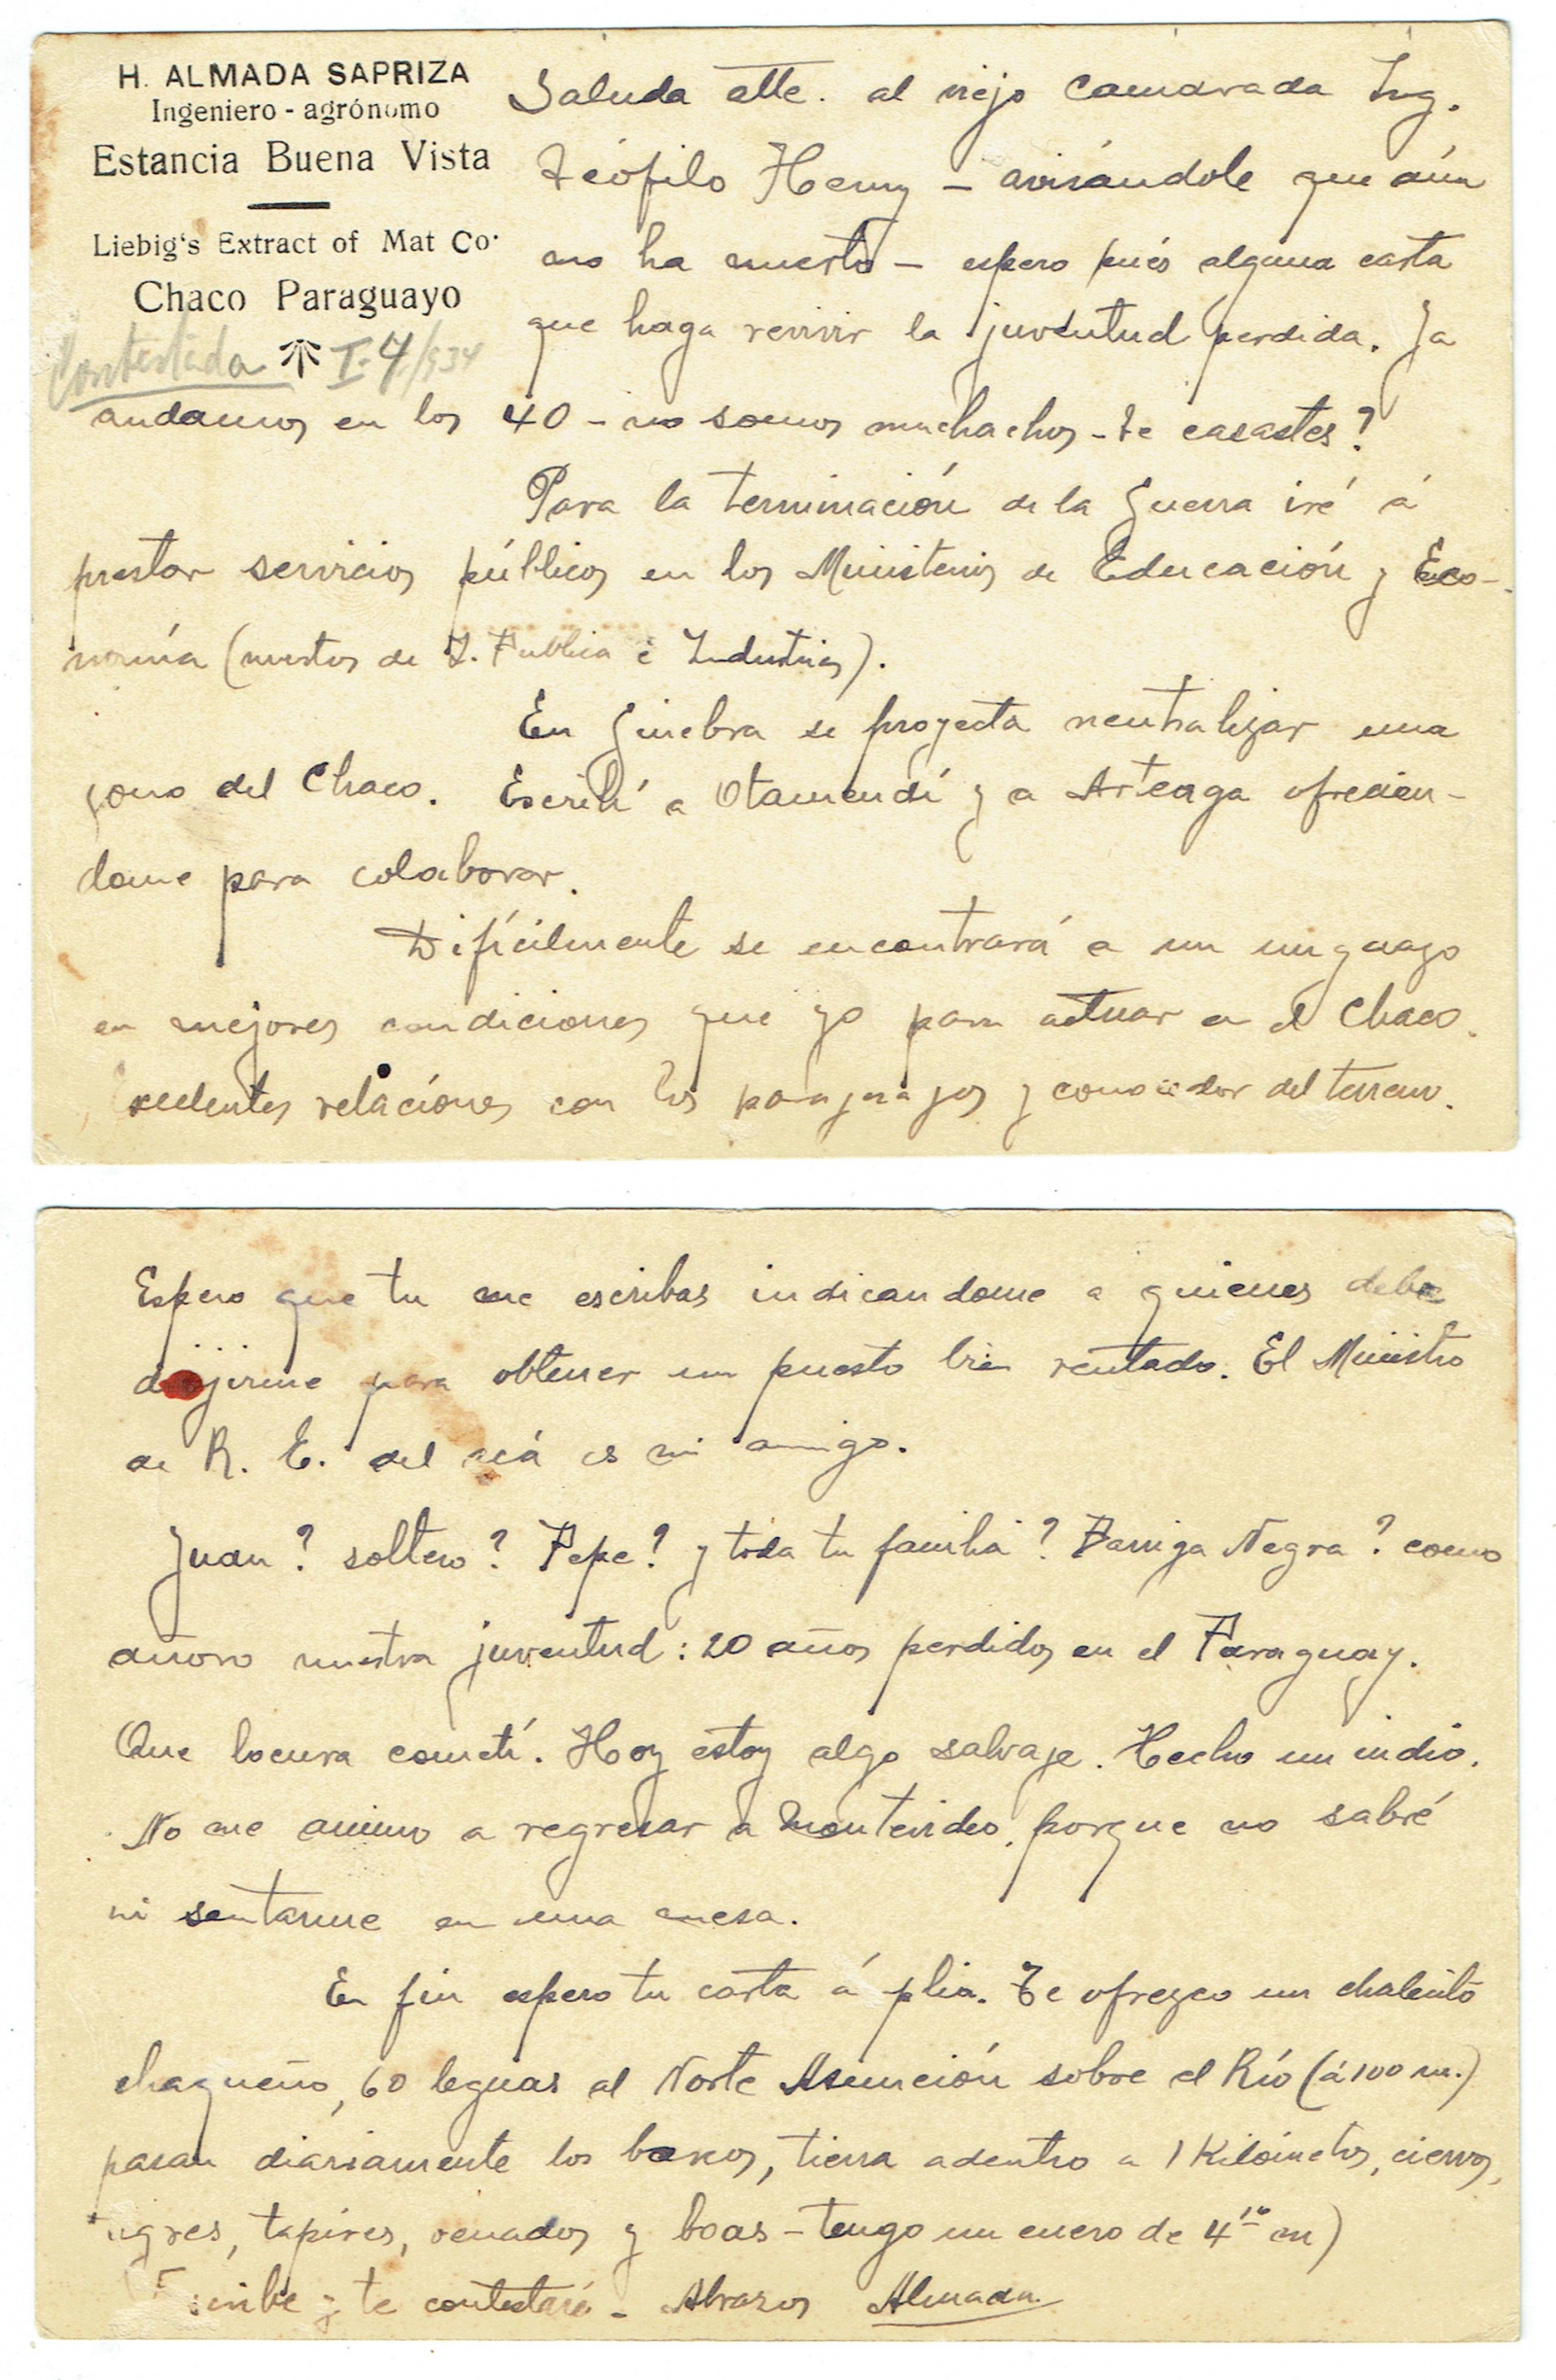 H. ALMADA SAPRIZA
Ingeniero - agrónomo
Estancia Buena Vista
Liebig's Extract of Mat Co.
Chaco Paraguayo
Contestada I-4/934
Saluda atte. al viejo camarada Ing.
Teófilo Henry - avisándole que aún
no ha muerto - espero pués alguna carta
que haga revivir la juventud perdida. Ya
andamos en los 40 - no somos muchachos - te casastes?
Para la terminación de la Guerra iré á
prestar servicios públicos en los Ministerios de Educación y Eco-
nomía (nuestros de I. Publica é Industrias).
En Ginebra se proyecta neutralizar una
zona del Chaco. Escribí a Otamendí y a Arteaga ofrecien-
dome para colaborar.
Difícilmente se encontrará a un uruguayo
en mejores condiciones que yo para actuar en el Chaco.
Excelentes relaciónes con los paraguayos y conocedor del terreno.
Espero que tu me escribas indicandome a quienes debo
dirijirme para obtener un puesto bien rentado. El Ministro
de R. E. del acá es mi amigo.
Juan? soltero? Pepe? y toda tu familia? Barriga Negra? como
añoro nuestra juventud: 20 años perdidos en el Paraguay.
Que locura cometí. Hoy estoy algo salvaje. Hecho un indio.
No me animo a regresar a Montevideo, porque no sabré
ni sentarme en una mesa.
En fin espero tu carta á plia. Te ofrezco un chalecito
chaqueño, 60 leguas al Norte Asunción sobre el Río (á 100 m.)
pasan diariamente los barcos, tierra adentro a 1 Kilómetro, ciervos,
tigres, tapires, venados y boas - tengo un cuero de 4 10 m)
Escribe y te contestaré - Abrazos Almada